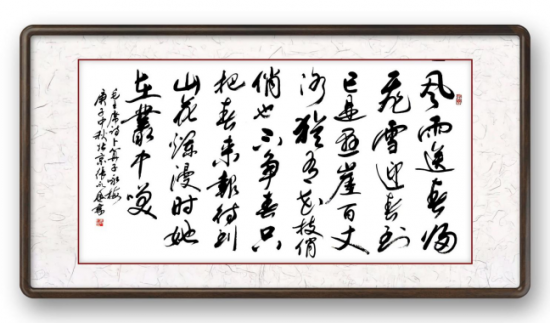 風雨送春归
飛雪迎春到
已是悬崖百丈
冰犹有花枝俏
俏也不争春只
把春来报待到
山花烂漫时她
在叢中笑
毛主席诗卜算子咏梅
庚子中秋